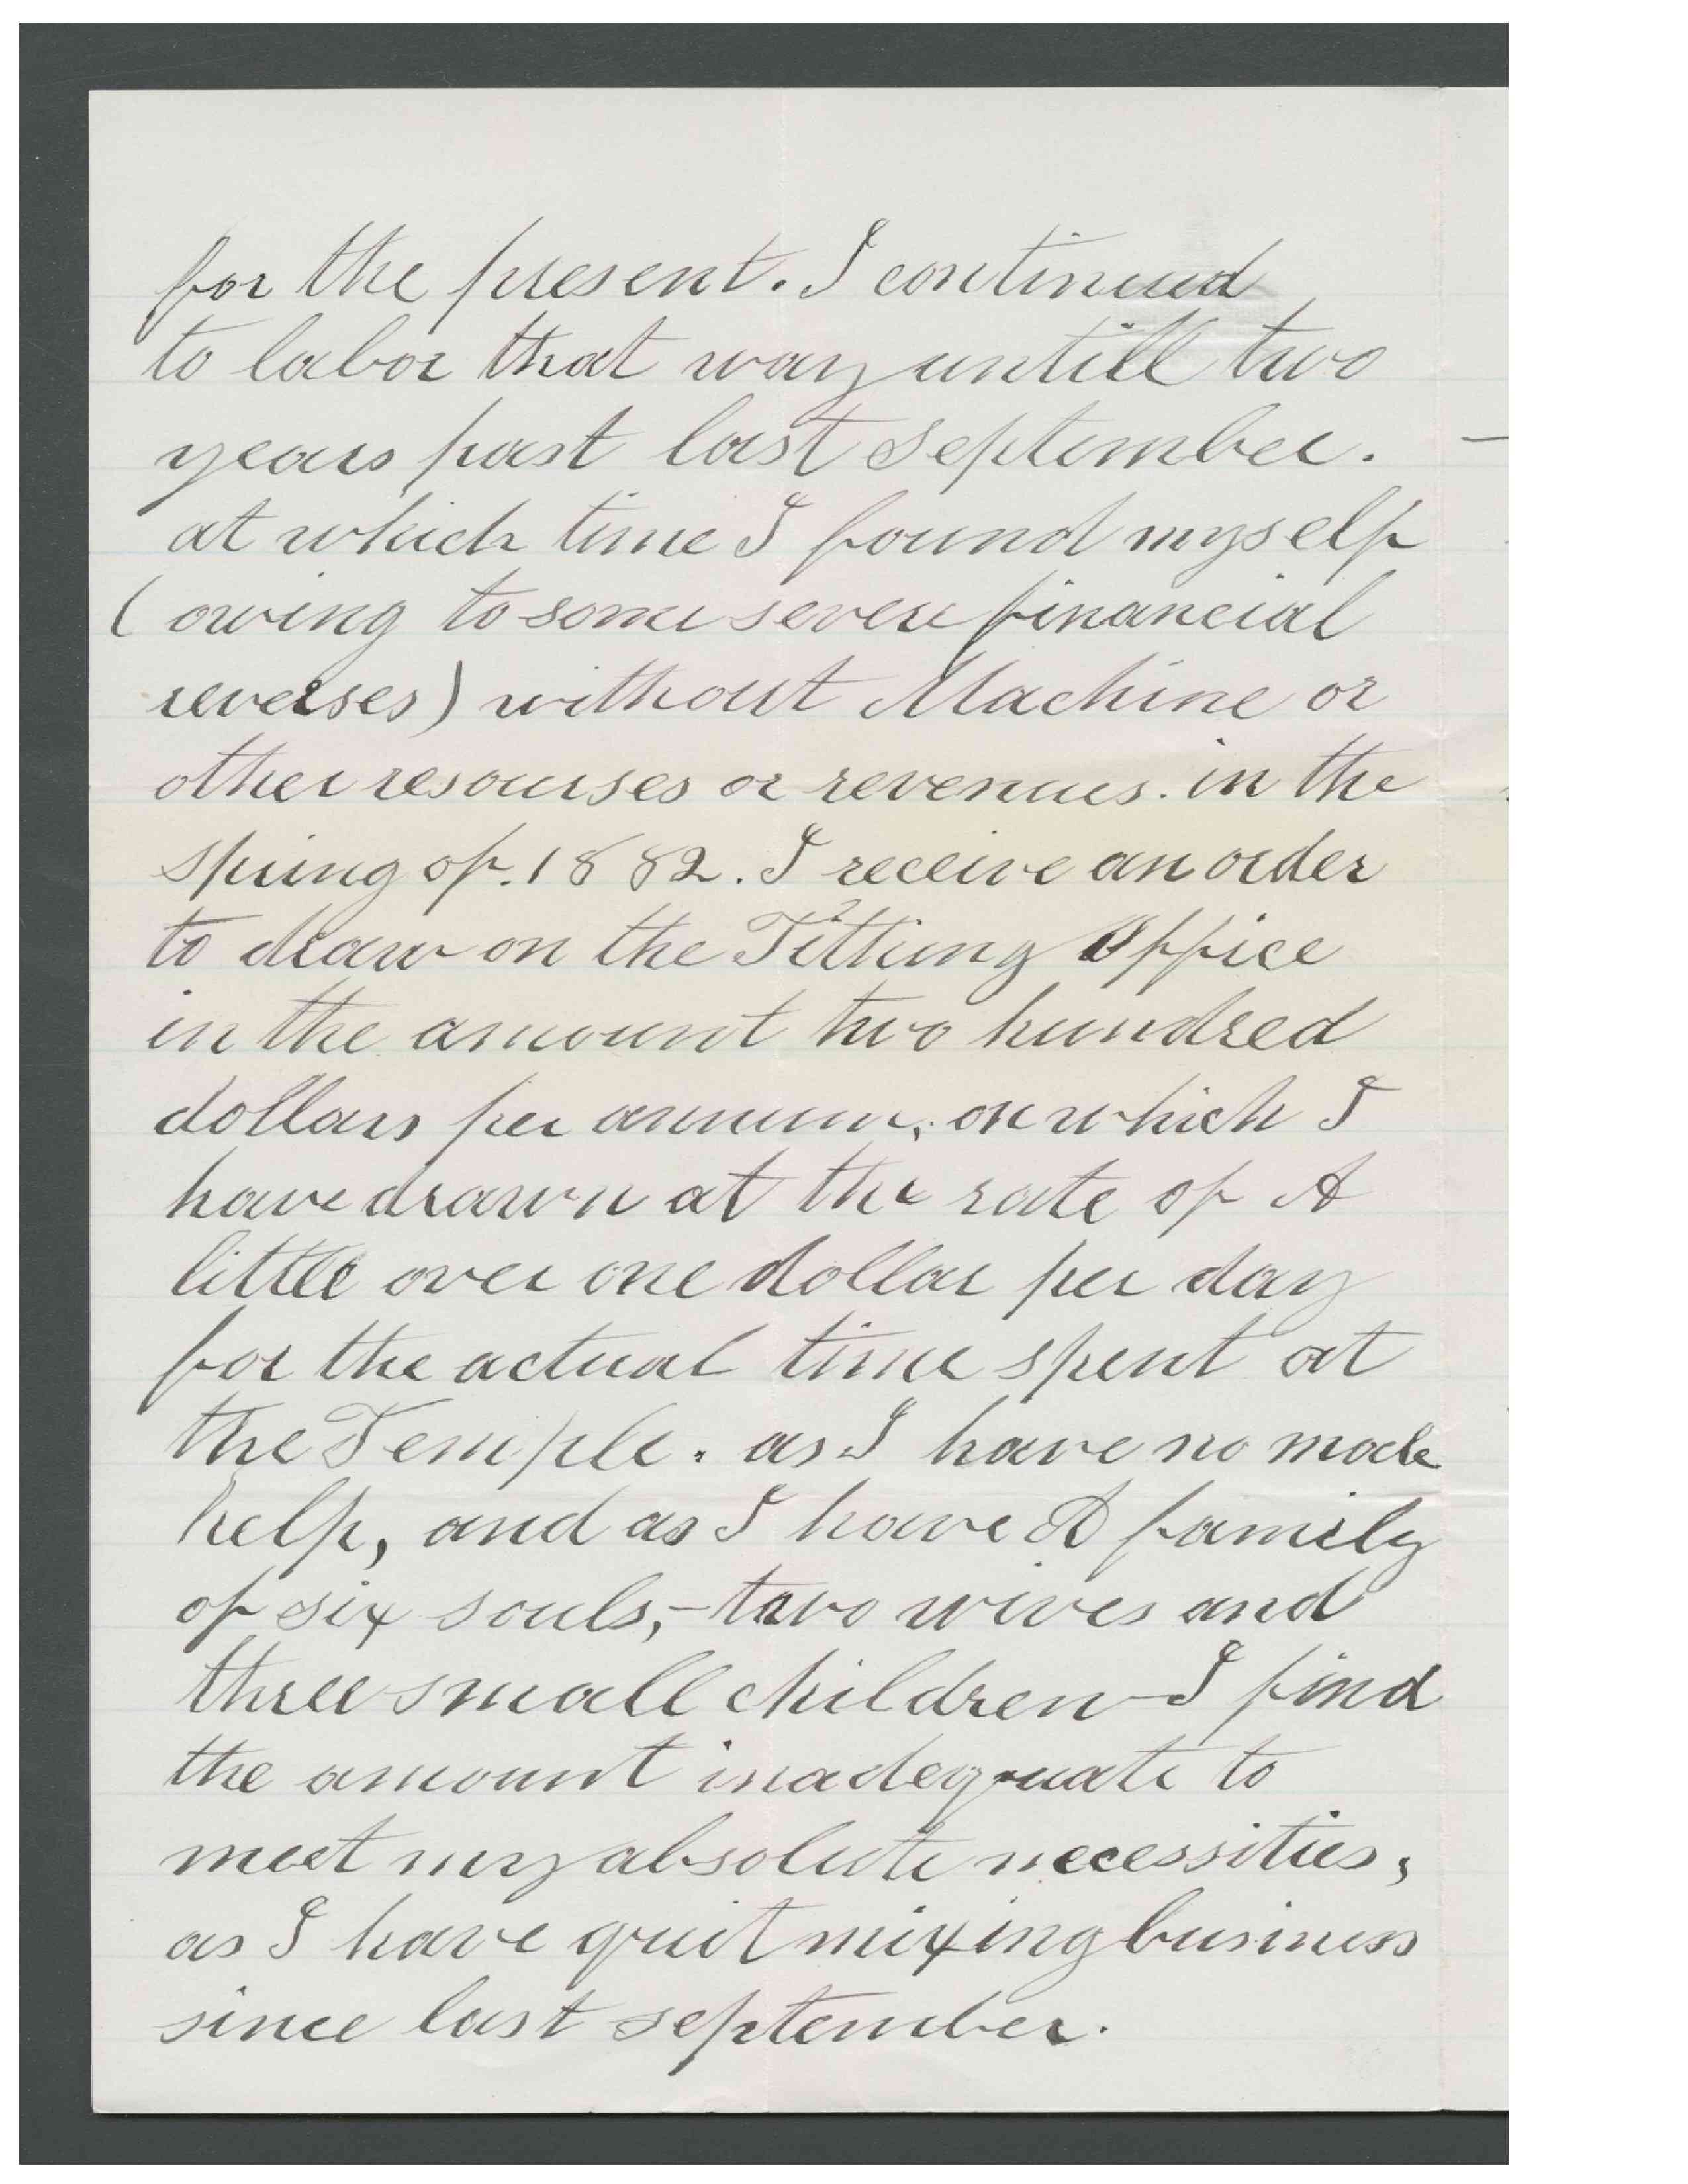 for the present. I continued
to labor that way untill two
years past last september.
at which time I found myself
(owing to some severe financial
reverses) without Machine or
other resourses or revenues. in the
spring of. 1882. I receive an order
to draw on the Tithing Office
in the amount two hundred
dollars per annum, on which I
have drawn at the rate of A
little over one dollar per day
for the actual time spent at
the Temple. as I have no male
help, and as I have A family
of six souls,- two wives and
three small children - I find
the amount inadequate to
meet my absolute necessities,
as I have quit mixing business
since last september.